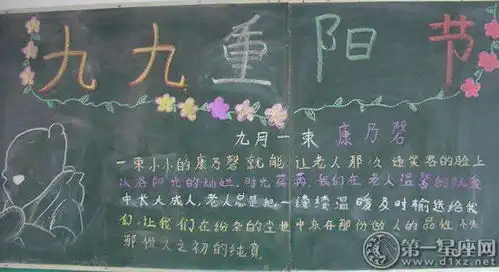 九九重阳节
九月一束 康乃磬
一束小小的康乃磬就能让老人那久违笑容的脸上
沐浴阳光的灿烂.时光荏苒,我们在老人温馨的呵护
中长大成人,老人总是把一缕缕温暖及时输送给我
们,让我们在纷杂的尘世中永存那份做人的品性,不失
那份人之初的纯真
第一星座网
www.d1xz.net